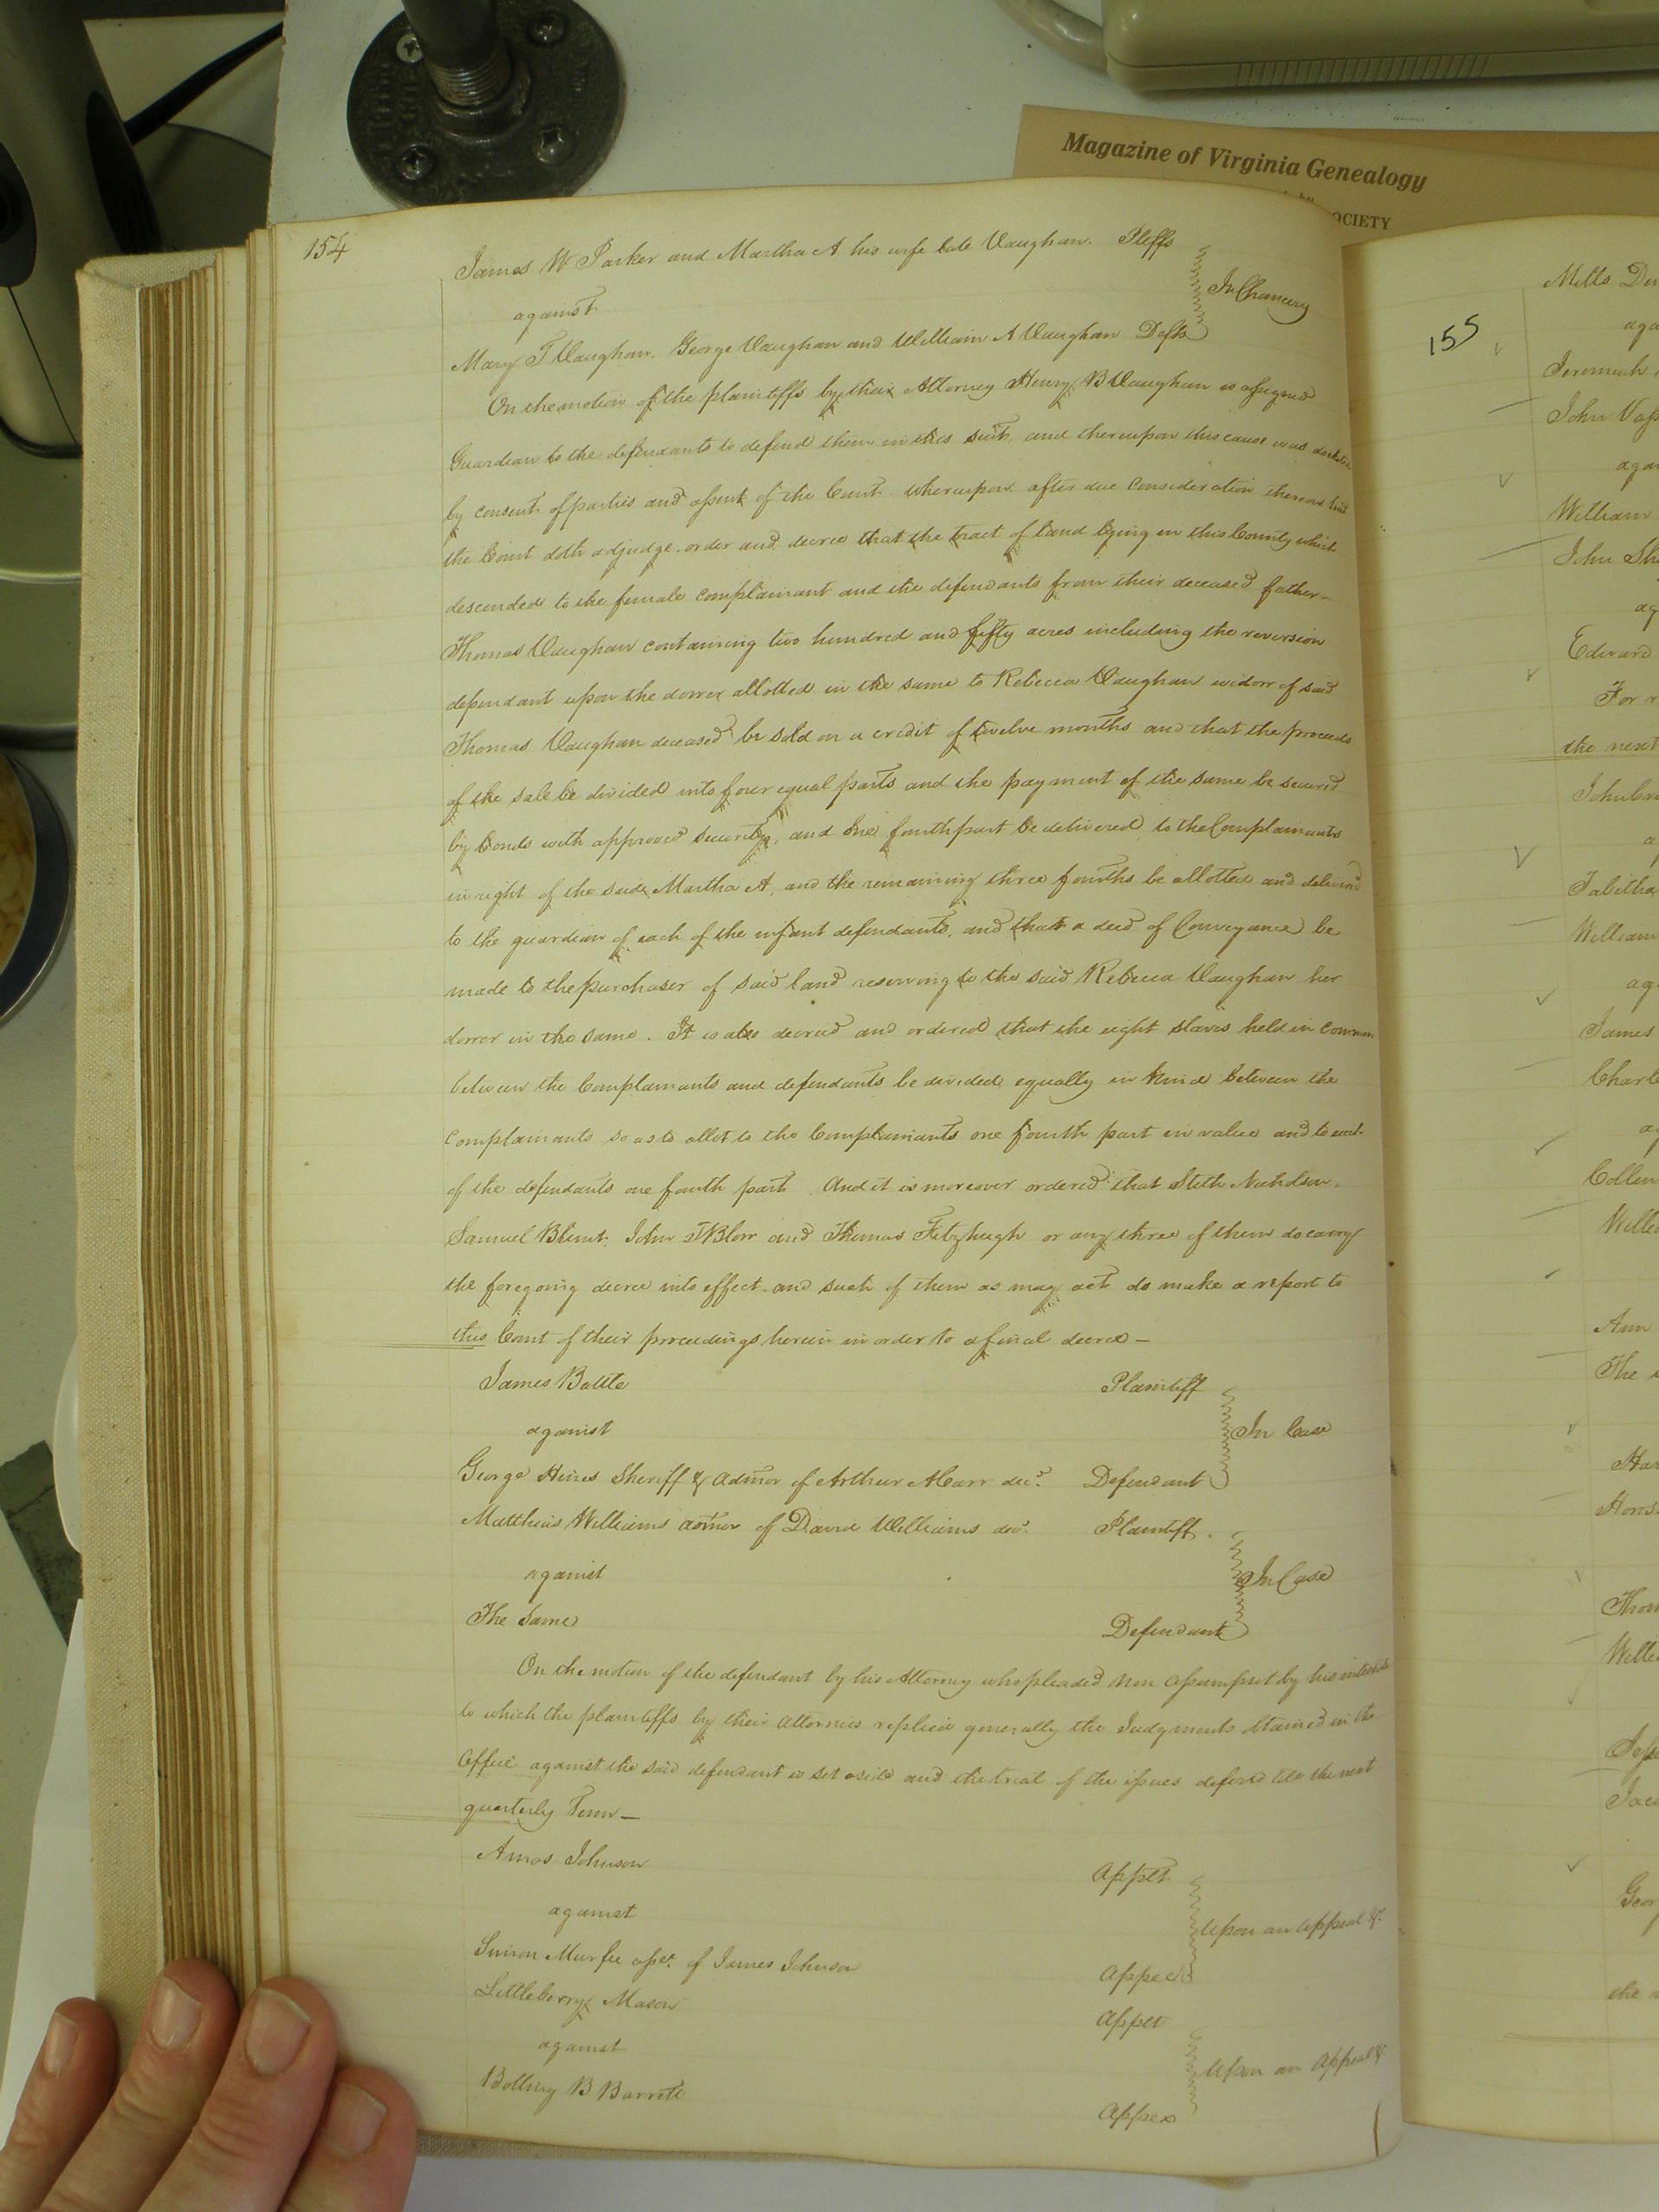 Magazine of Virginia Genealogy
OCIETY
154
James W Parker and Martha A his wife late Vaughan. Pltffs
against
In Chancery
Mary T Vaughan, George Vaughan and William A Vaughan Defts
On the motion of the plaintiffs by their Attorney Henry B Vaughan is assigned
Guardian to the defendants to defend them in this suit, and thereupon this cause was docketed
by consent of parties and assent of the Court. Whereupon after due Consideration thereon had
the Court doth adjudge, order and decree that the tract of land lying in this County which
descended to the female complainant and the defendants from their deceased father
Thomas Vaughan containing two hundred and fifty acres including the reversion
dependant upon the dower allotted in the same to Rebecca Vaughan widow of said
Thomas Vaughan deceased be sold on a credit of twelve months and that the proceeds
of the sale be divided into four equal parts and the payment of the same be secured
by bonds with approved security, and one fourth part be delivered to the Complainants
in right of the said Martha A, and the remaining three fourths be allotted and delivered
to the guardian of each of the infant defendants, and that a deed of Conveyance be
made to the purchaser of said land reserving to the said Rebecca Vaughan her
dower in the same. It is also decreed and ordered that the eight slaves held in common
between the Complainants and defendants be divided equally in kind between the
Complainants so as to allot to the Complainants one fourth part in value and to each
of the defendants one fourth part And it is moreover ordered that Stith Nicholson,
Samuel Blunt, John T Blow and Thomas Fitzhugh or any three of them do carry
the foregoing decree into effect and such of them as may act do make a report to
this Court of their proceedings herein in order to a final decree —
James Battle Plaintiff
against
In Case
George Hines Sheriff & admor of Arthur A Carr decd. Defendant
Matthias Williams admor of David Williams decd. Plaintiff.
against
In Case
The Same Defendant
On the motion of the defendant by his Attorney who pleaded non assumpsit by his intestate
to which the plaintiffs by their attornies replied generally the Judgments obtained in the
Office against the said defendant is set aside and the trial of the issues deferd till the next
quarterly Term —
Amos Johnson Applt
against
Upon an appeal &c.
Simon Murfee asse. of James Johnson Appee
Littleberry Mason Applt
against
Upon an appeal &c
Bolling B Barrett Appee
155
Mills
aga
Jeremiah
John
aga
William
John
ag
Edward
For
the next
John
a
Tabitha
William
ag
James
Charl
a
Collin
Willi
Ann
The
Har
Thom
Willi
Jesse
Jac
Geor
the